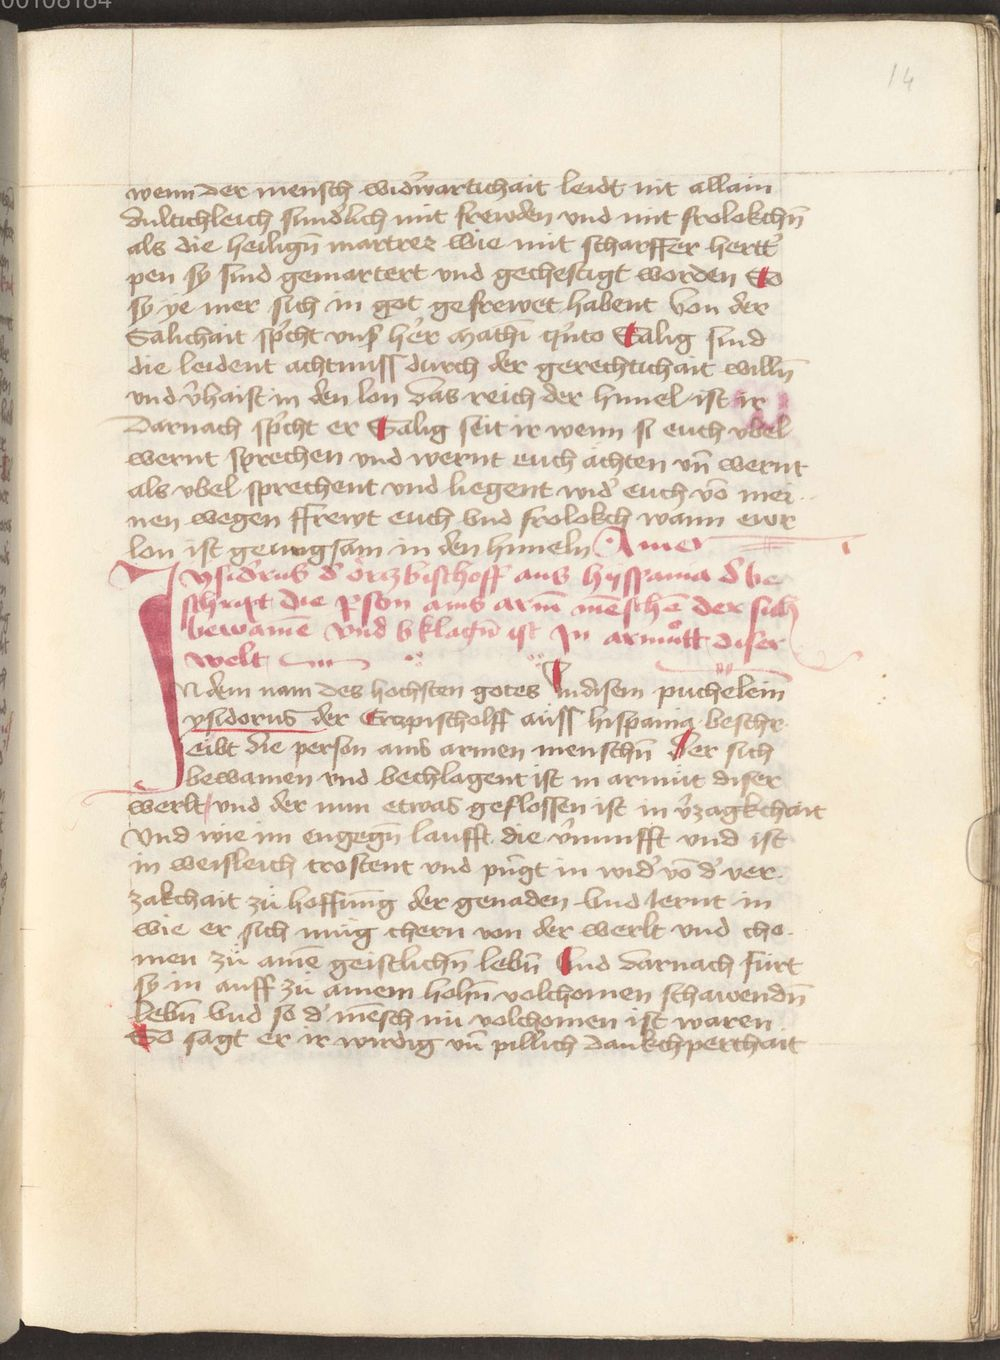 00108184
14
wenn der mensch wid'wartichait leidt nit allain
dultichleich sund'lich mit frewden vnd mit frolokchn̄
als die heilign̄ martrer wie mit scharffer hertt'
pen sy sind gemartert vnd gechestigt worden So
sy ye mer sich in got gefrewet habent Von der
Salichait sp'cht vns' her' mathi q'nto Salig sind
die leident achtnuss durch der gerechtichait willn̄
vnd v'haist in den lon das reich der himel ist ir
Darnach sp'cht er Salig seit ir wenn si euch vbel
wernt sprechen vnd wernt euch achten vn̄ wernt
als vbel sprechent vnd liegent wid' euch vō mei
nen wegen ffrewt euch vnd frolokch wann ewr
lon ist genugsam in den himeln Amen
ysid'rus d' Erczbischoff aus hyspania d' be
schript die p'son ains arm̄ mēschē der sich
bewainē vnd b'klagn̄ ist In armůtt diser
welt
IN dem nam des hochsten gotes In disem puchelein
ysidorus der Erczpischolff auss hispania beschr
eibt die person ains armen menschn̄ Der sich
bewainen vnd bechlagent ist in armut diser
werlt vnd der nun etwas geflossen ist in v'zagkchait
Vnd wie im engegn̄ laufft die v'nunfft vnd ist
in weisleich trostent vnd pringt in wid' vō d' ver
zakchait zu hoffnūg der genaden vnd lernt in
wie er sich mug chern von der werlt vnd cho
men zu ainē geistlichn̄ lebn̄ Vnd darnach fürt
sy in auff zu ainem hohn̄ volchomen schawendn̄
lebn̄ vnd so d' mēsch nu volchomen ist waren
So sagt er ir wirdig vn̄ pillich dankchperchait